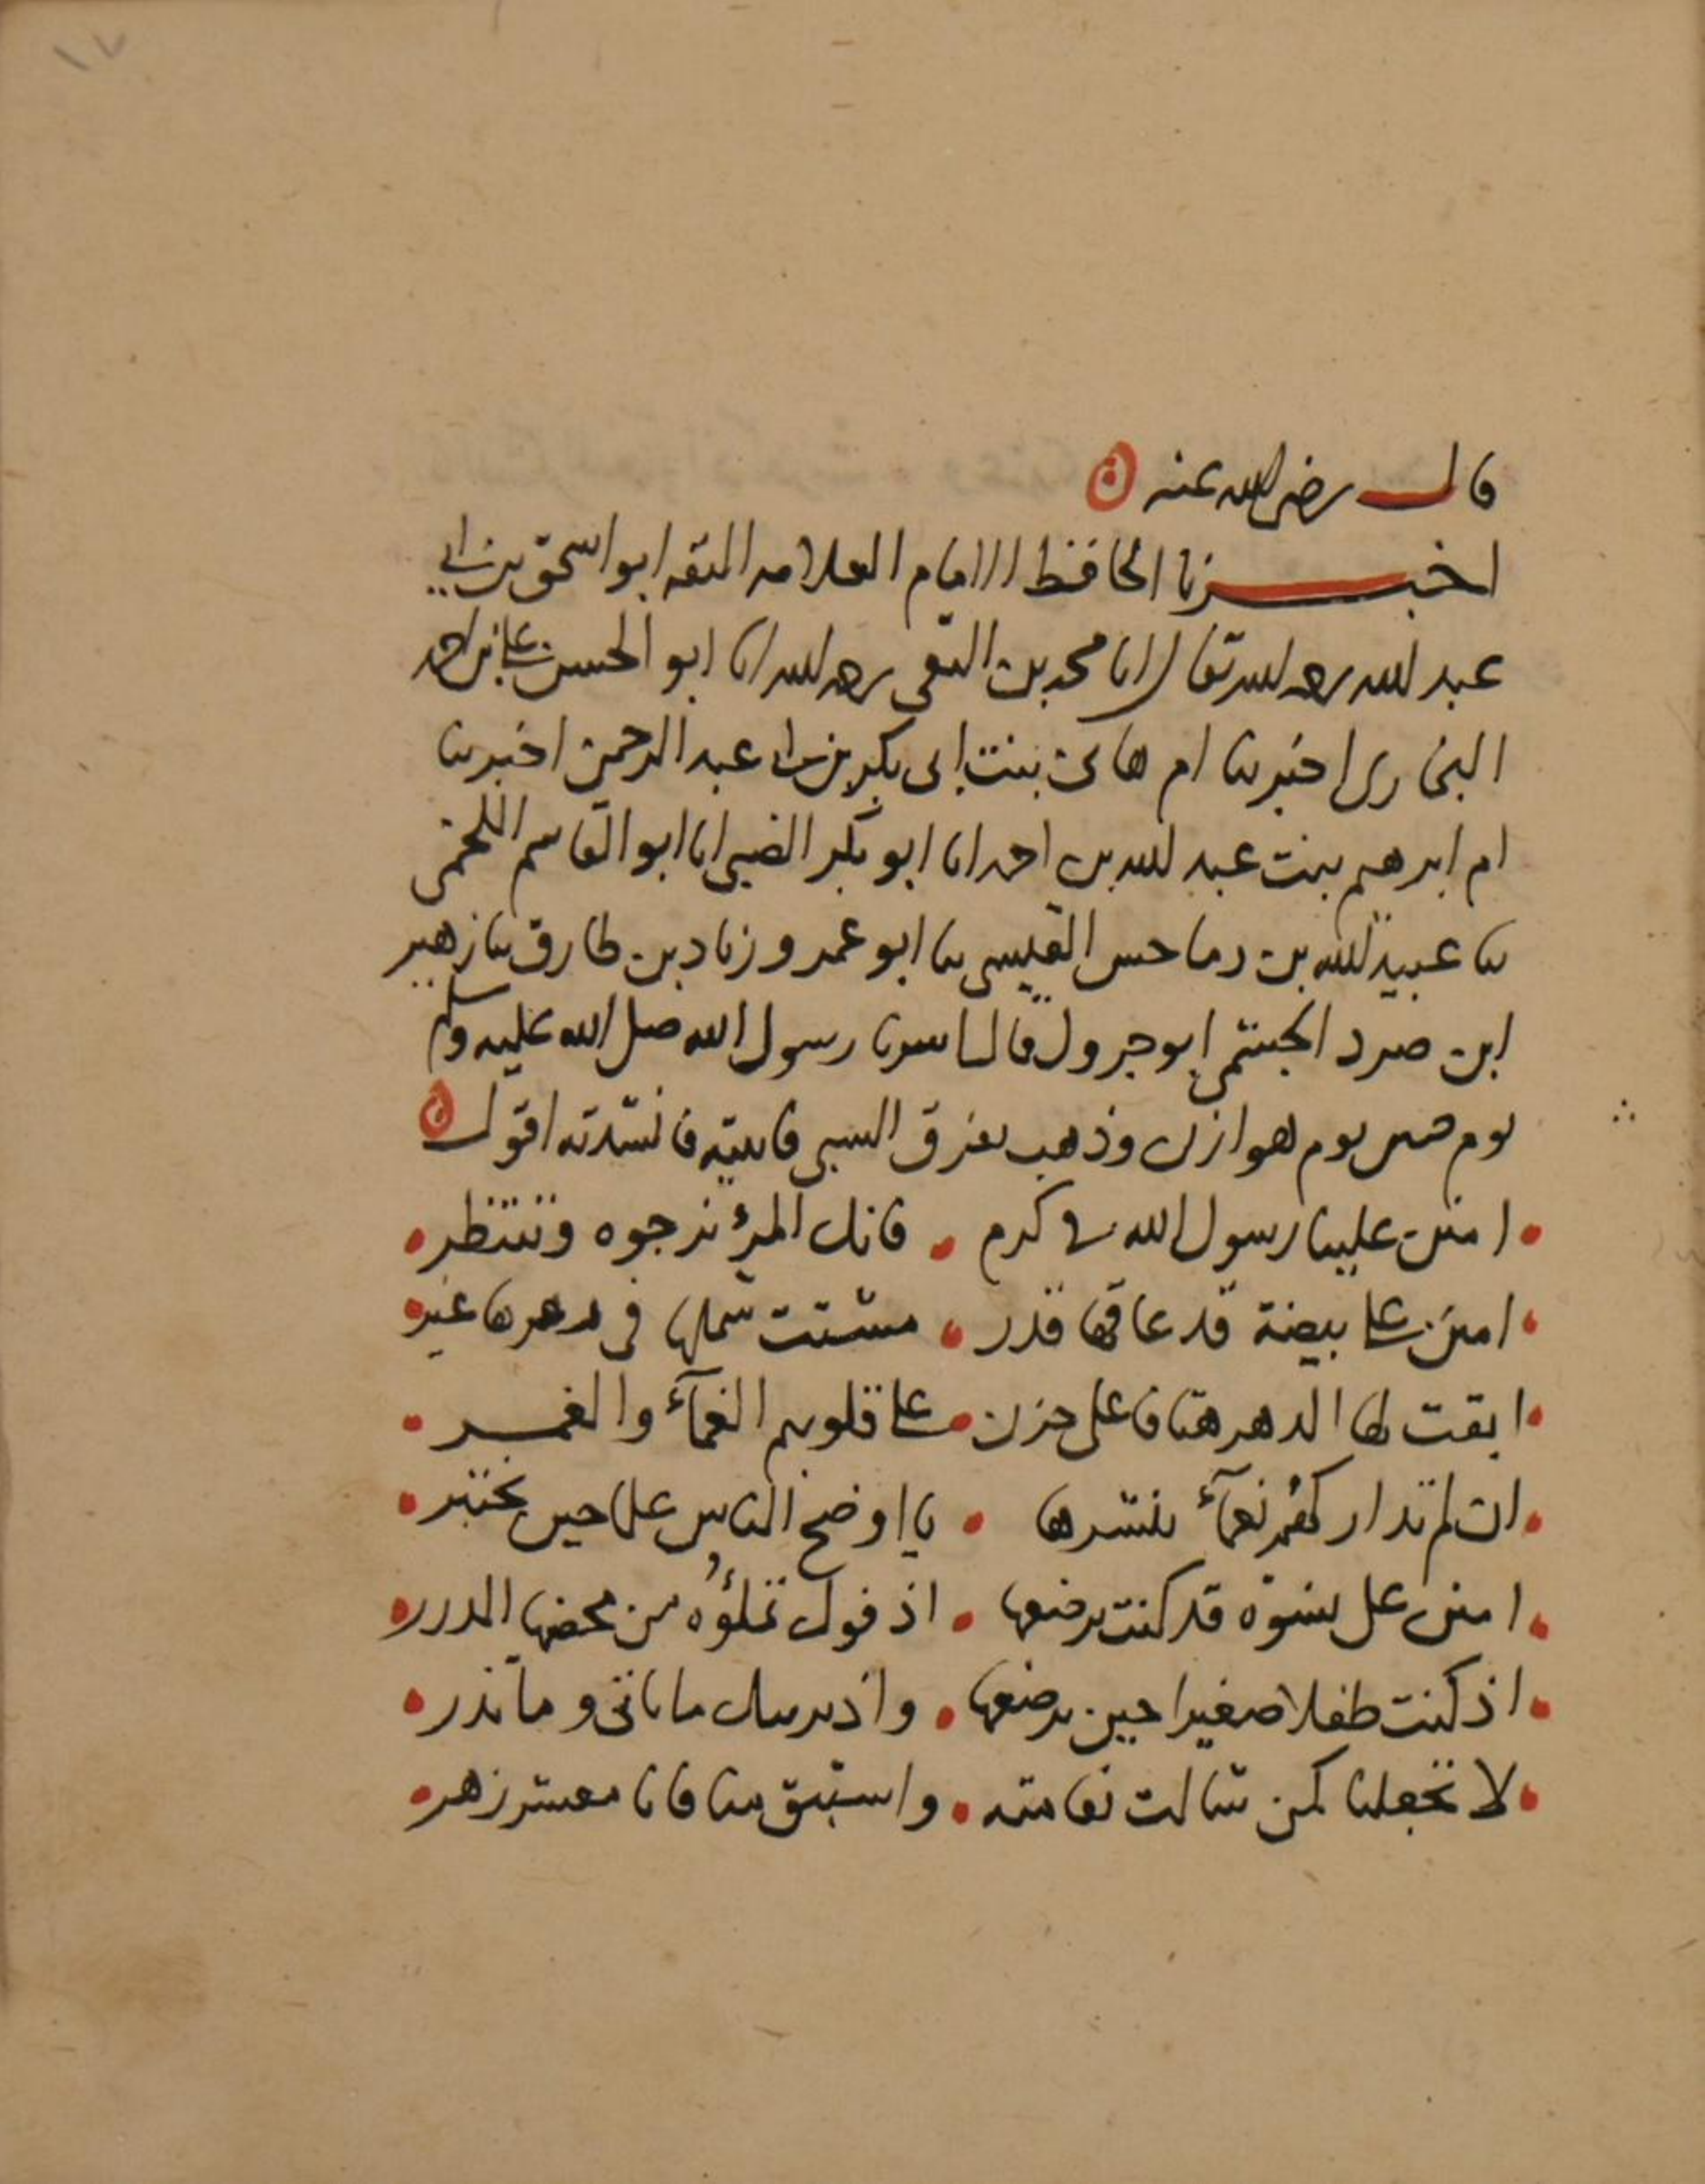 ١٧
قال رضي الله عنه
اخبرنا الحافظ الامام العلامه الثقه ابو اسحق بن ابي
عبد الله رحمه الله تعالى انا محمد بن التقي رحمه الله انا ابو الحسن علي بن احمد
البخاري اخبرتنا ام هانئ بنت ابي بكر بن عبد الرحمن اخبرتنا
ام ابرهيم بنت عبد الله بن احمد انا ابو بكر الضبي انا ابو القاسم اللخمي
ثنا عبيد الله بن رماحس القيسي ثنا ابو عمرو زياد بن طارق ثنا زهير
ابن صرد الجشمي ابو جرول قال لما اسرنا رسول الله صلى الله عليه وسلم
يوم حنين يوم هوازن وذهب يفرق السبي فاتيته فانشدته اقول
امنن علينا رسول الله في كرم فانك المرء نرجوه وننتظر
امنن على بيضة قد عاقها قدر مشتت شملها في دهرها غير
ابقت لها الدهر هتافا على حزن على قلوبهم الغمآء والغمر
ان لم تداركهم نعمآء تنشرها يا اوضح الناس علما حين يختبر
امنن على نسوة قد كنت ترضعها اذ فوك تملؤه من محضها الدرر
اذ كنت طفلا صغيرا حين ترضعها واذ يريبك ما تاتي وما تذر
لا تجعلنا كمن شالت نعامته واستبق منا فانا معشر زهر